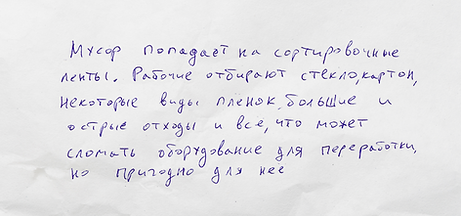 Мусор попадает на сортировочные
ленты. Рабочие отбирают стекло, картон,
некоторые виды пленок, большие и
острые отходы и все, что может
сломать оборудование для переработки,
но пригодно для нее